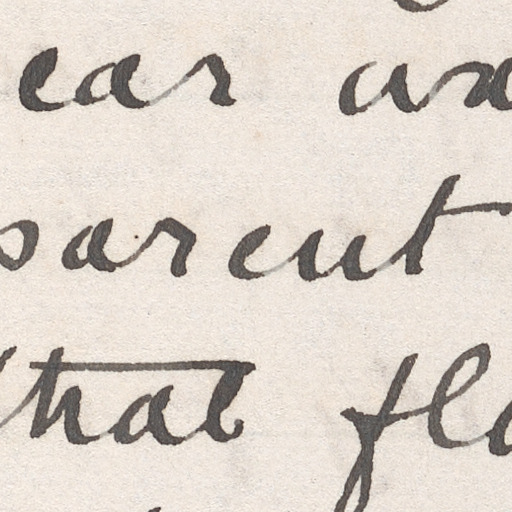 ear
parent
that flo